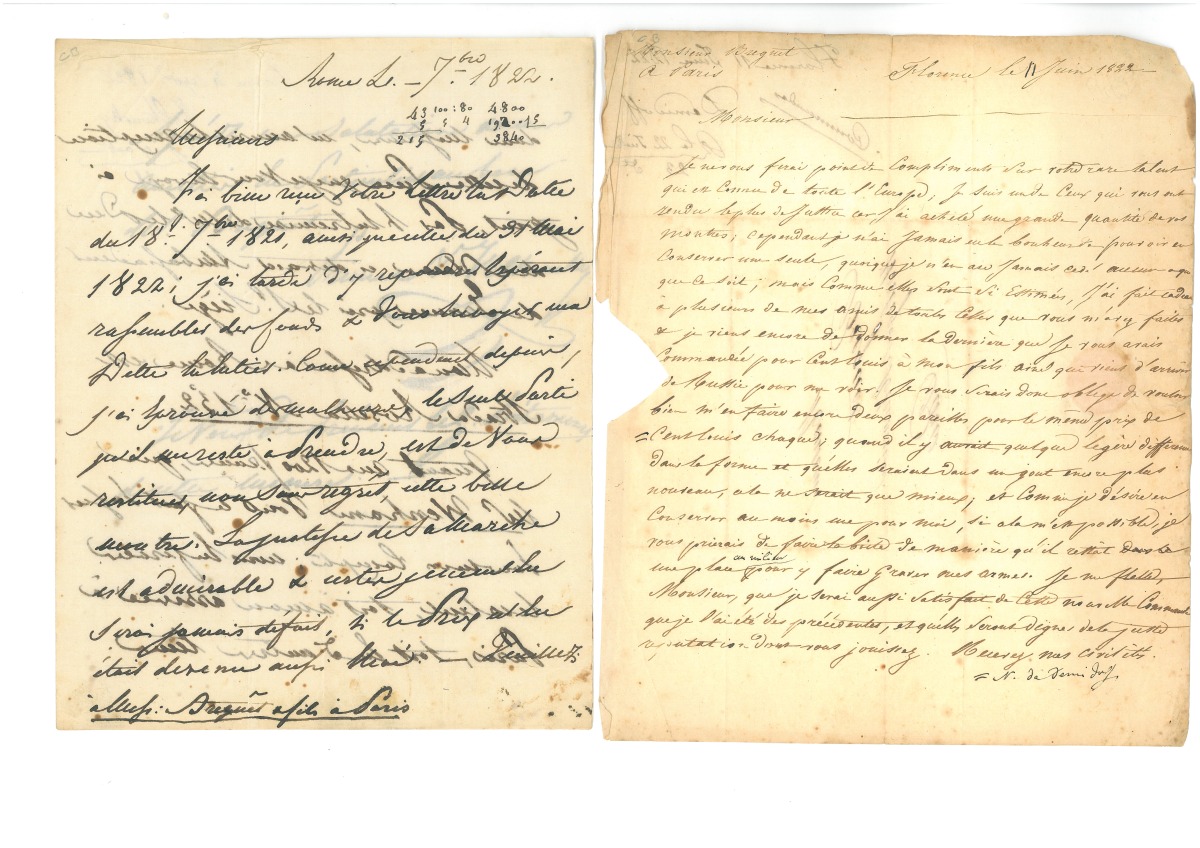 Rome Le - 7.bre 1822.
43 100:80 4800
5 5 4 192.00.15
215 3840
Messieurs
J'ai bien reçu Votre lettre en Datte
du 18 7bre 1821, ainsi que celle du 31 Mai
1822; j'ai tardé d'y repondre espérant
rassembler des fonds & Vous envoyer ma
Dette entière. Comme cependant depuis,
j'ai éprouvé des malheurs, le seul Parti
qu'il me reste à Prendre, est de Vous
restituer, non sans regret, cette belle
montre. La justesse de sa Marche
est admirable & certes je ne m'en
serai jamais défait, si le Prix ne lui
était devenu aussi élevé. Veuillez
à Mess: Breguet & fils à Paris
Monsieur Breguet
A Paris
Florence le 11 Juin 1822
Monsieur
Je ne vous ferai point de Compliments sur votre rare talent
qui est Connu de toute l'Europe; Je suis un de Ceux qui vous ont
rendu le plus de Justice car J'ai acheté une grande quantité de vos
montres; cependant je n'ai Jamais eu le bonheur de pouvoir en
Conserver une seule, quoique je n'en aie Jamais cédé aucune à qui
que ce soit; mais Comme elles sont si Estimées, J'ai fait cadeau
à plusieurs de mes amis de toutes Celles que vous m'avez faites
& je viens encore de donner la dernière que Je vous avais
Commandée pour Cent Louis à mon fils ainé qui vient d'arriver
de Russie pour me voir. Je vous serais donc obligé de vouloir
bien m'en faire encore deux pareilles pour le même prix de
= Cent Louis chaque; quand il y aurait quelque légère différence
dans la forme et qu'elles seraient dans un gout encore plus
nouveau, cela ne serait que mieux; et Comme je désire en
Conserver au moins une pour moi, si cela m'est possible, je
vous prierais de faire la boite de manière qu'il restât dans le
au milieu
une place pour y faire Graver mes armes. Je me flatte,
Monsieur, que je serai aussi satisfait de Cette nouvelle Commande
que je l'ai été des précédentes, et qu'elles seront digne de la juste
reputation dont vous jouissez. Recevez mes civilités.
= N. de Demidoff